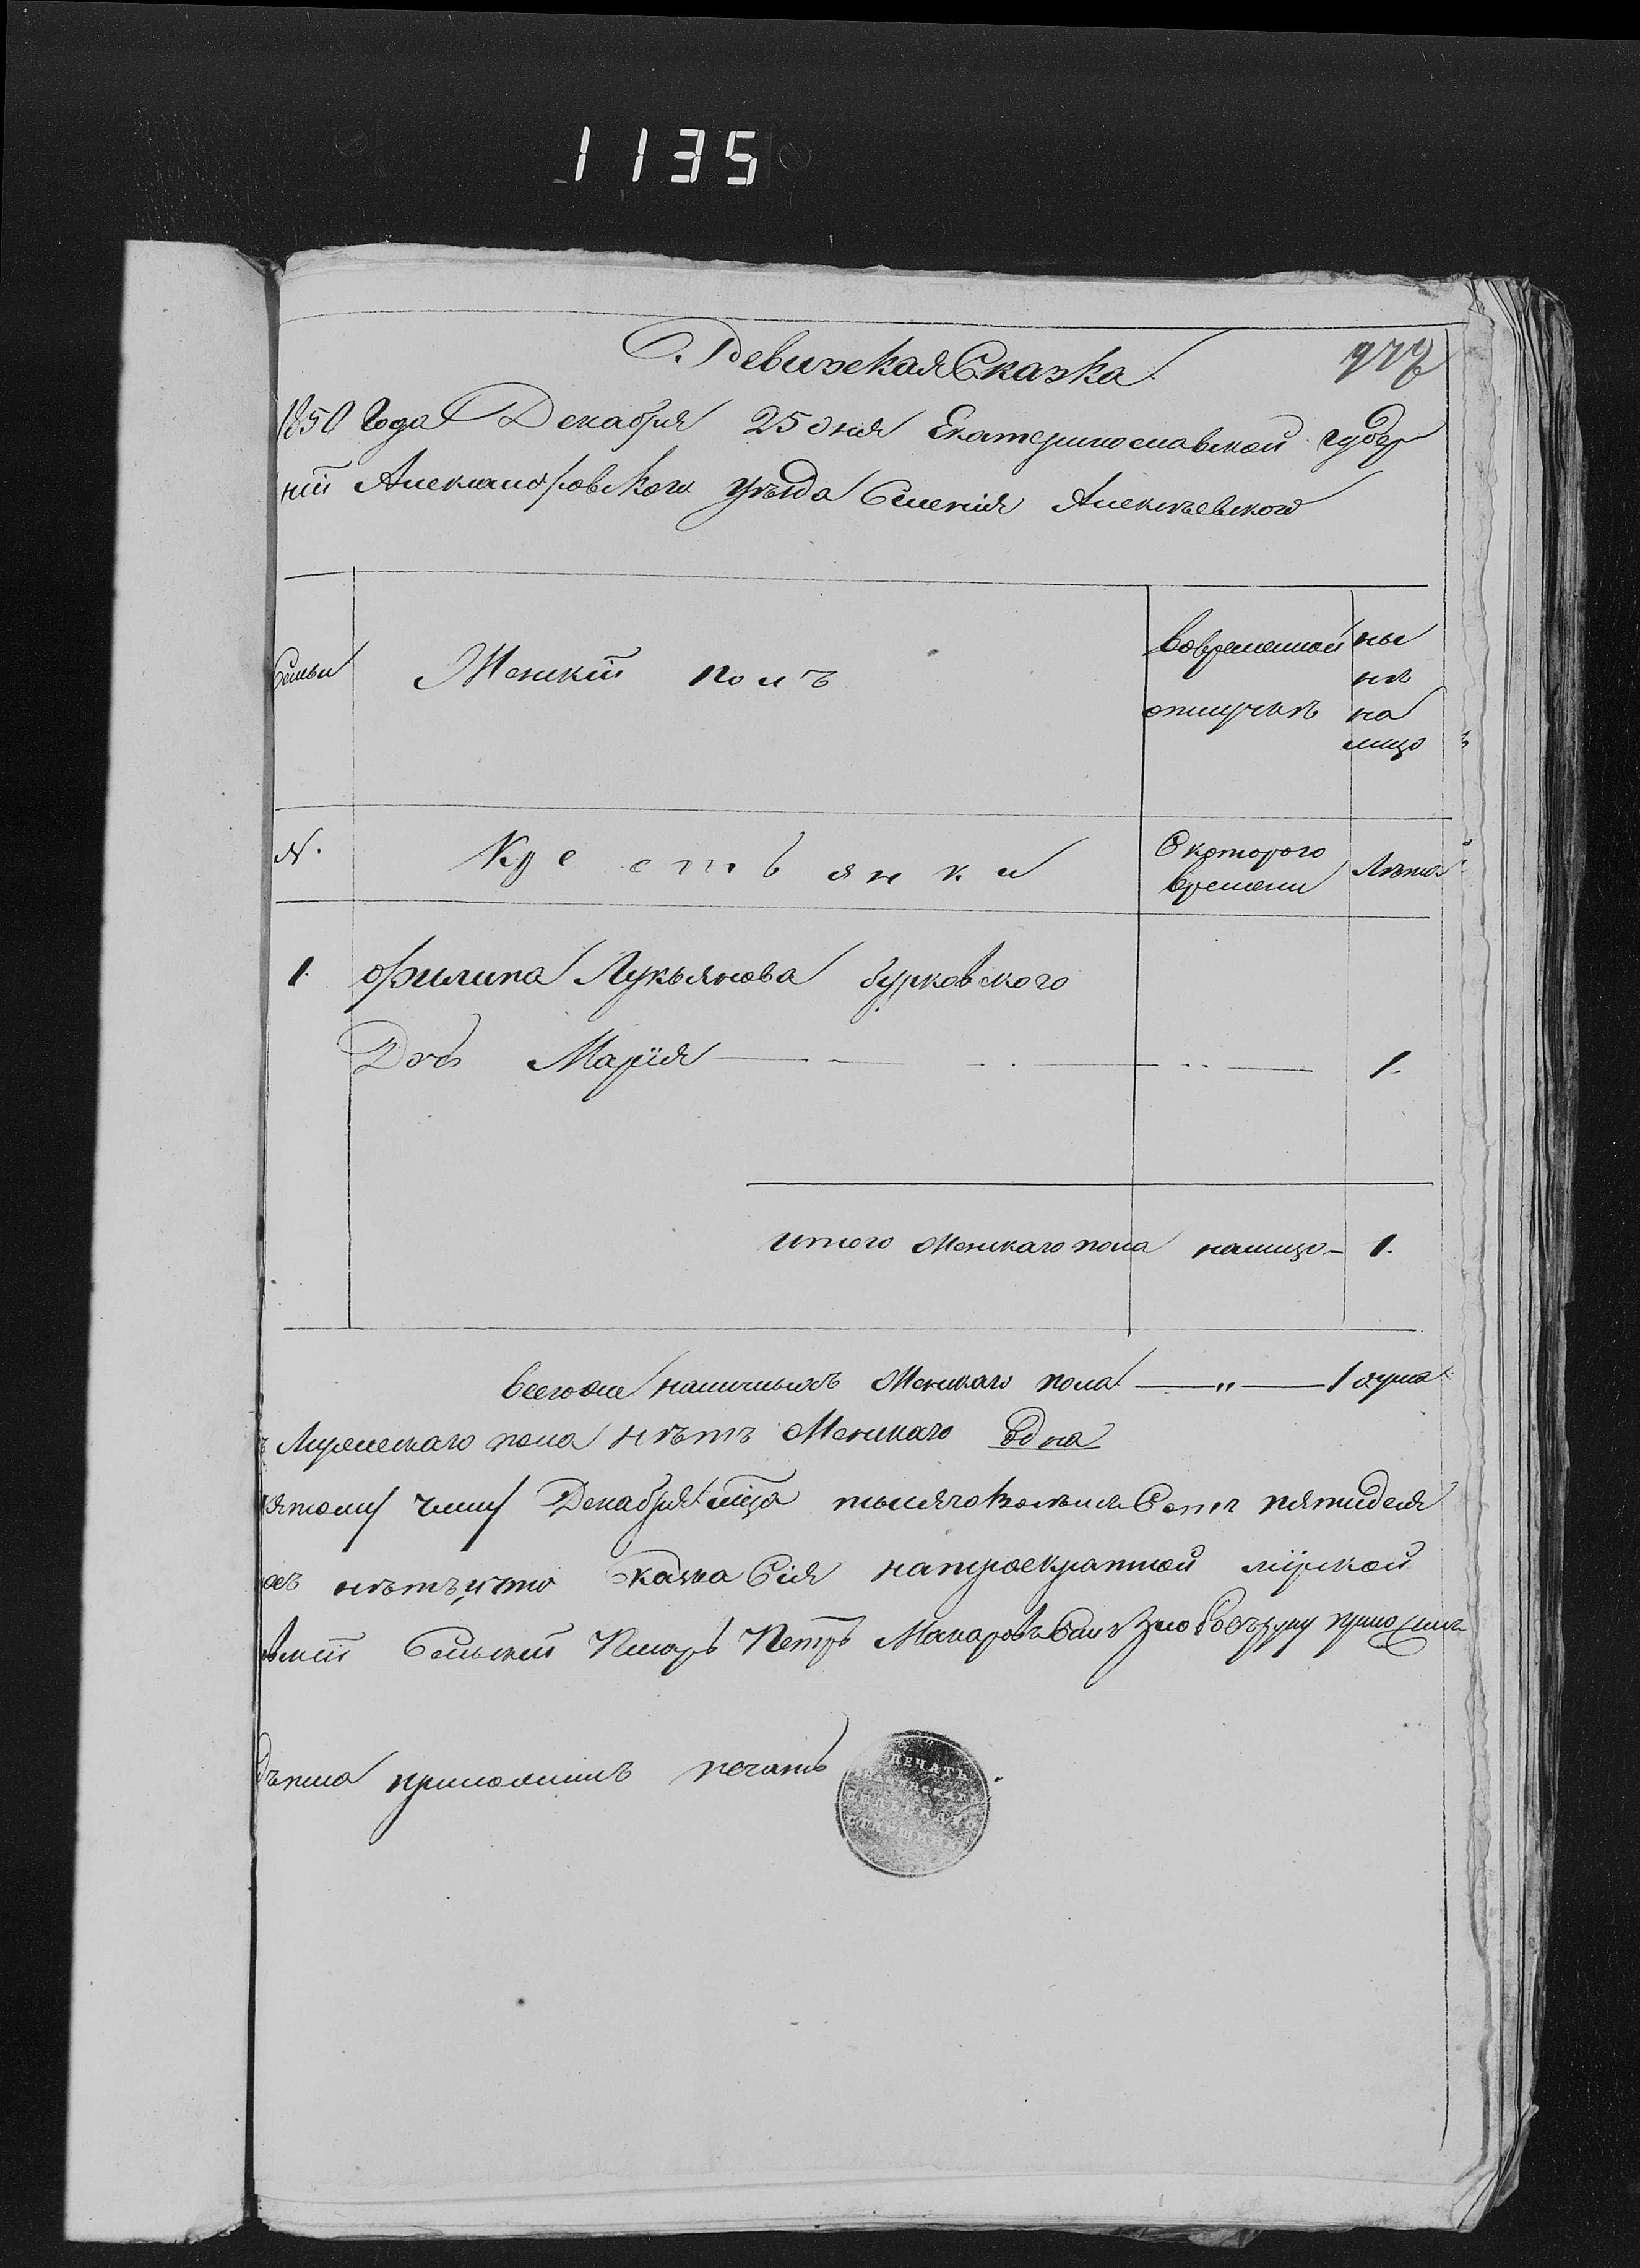 1135
Ревизская Сказка
977
1850 Года Декабря 25 дня Екатеринославской губер
ніи Александровского уѣзда Селенія Алексѣевского
Семьи Женскій полъ
вовременной отлучкѣ
ны нѣ на лицо
N. Крестьянки
С которого времени
Лѣта
1. Филипа Лукьянова Бурковского
Дочь Марія 1.
Итого Женскаго пола налицо 1.
Всего оне наличныхъ Женскаго пола — " — 1 душа
Мужескаго пола нѣтъ Женскаго Одна
пятому числу Декабря мѣца тысяча восемьсотъ пятидеся
нѣтъ, и что сказка Сія на троекратной мірской
Сельскій Писарь Петръ Макаровъ
приложилъ печать
ПЕЧАТЬ